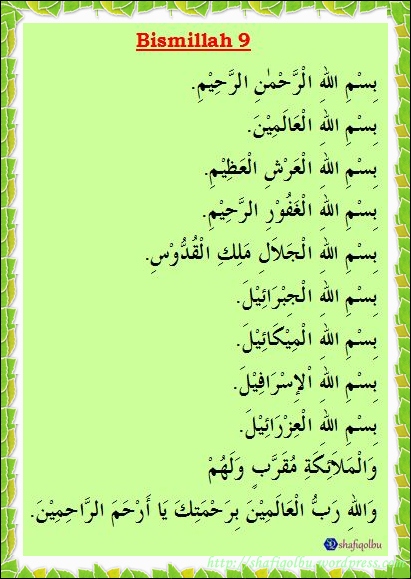 Bismillah 9
بِسْمِ اللهِ الْرَّحْمٰنِ الرَّحِيْمِ.
بِسْمِ اللهِ الْعَالَمِيْنَ.
بِسْمِ اللهِ الْعَرْشِ الْعَظِيْمِ.
بِسْمِ اللهِ الْغَفُوْرِ الرَّحِيْمِ.
بِسْمِ اللهِ الْجَلاَلِ مَلِكِ الْقُدُّوْسِ.
بِسْمِ اللهِ الْجِبْرَائِيْلَ.
بِسْمِ اللهِ الْمِيْكَائِيْلَ.
بِسْمِ اللهِ اْلإِسْرَافِيْلَ.
بِسْمِ اللهِ الْعِزْرَائِيْلَ.
وَالْمَلاَئِكَةِ مُقَرَّبٍ وَلَهُمْ
وَاللهِ رَبُّ الْعَالَمِيْنَ بِرَحْمَتِكَ يَا أَرْحَمَ الرَّاحِمِيْنَ.
shafiqolbu
http://shafiqolbu.wordpress.com